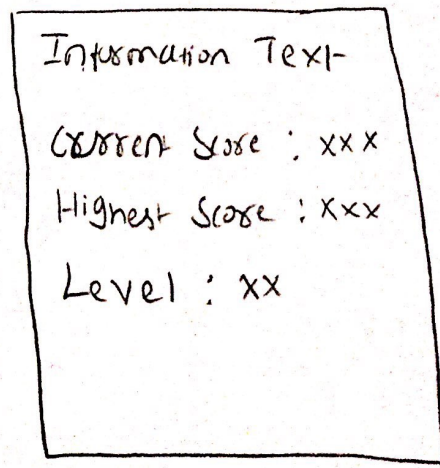 Information Text
Current Score : xxx
Highest Score : xxx
Level : xx